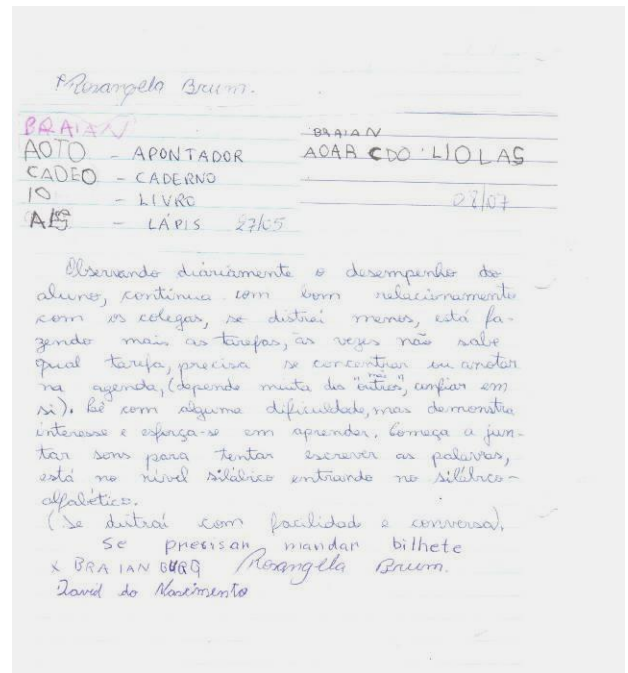 Rosangela Brum.
BRAIAN
AOTO - APONTADOR
CADEO - CADERNO
IO - LIVRO
AIS - LÁPIS 27/05
BRAIAN
AOAB CDO LIOLAS
07/07
Observando diáriamente o desempenho do
aluno, continua com bom relacionamento
com os colegas, se distrai menos, está fa-
zendo mais as tarefas, as vezes não sabe
qual tarefa, precisa se concentrar ou anotar
na agenda, (depende muito dos "outros", não confiar em
si). Lê com alguma dificuldade, mas demonstra
interesse e esforça-se em aprender. Começa a jun-
tar sons para tentar escrever as palavras,
está no nível silábico entrando no silábico-
alfabético.
(Se distrai com facilidade e conversa).
Se precisar mandar bilhete
x BRAIAN Rosangella Brum.
David do Nascimento